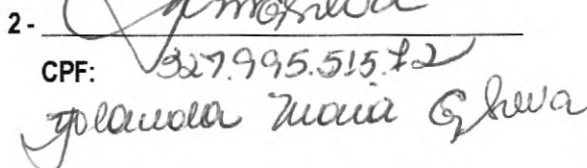 2 -
CPF: 327.995.515.72
Yolanda Maria G Silva